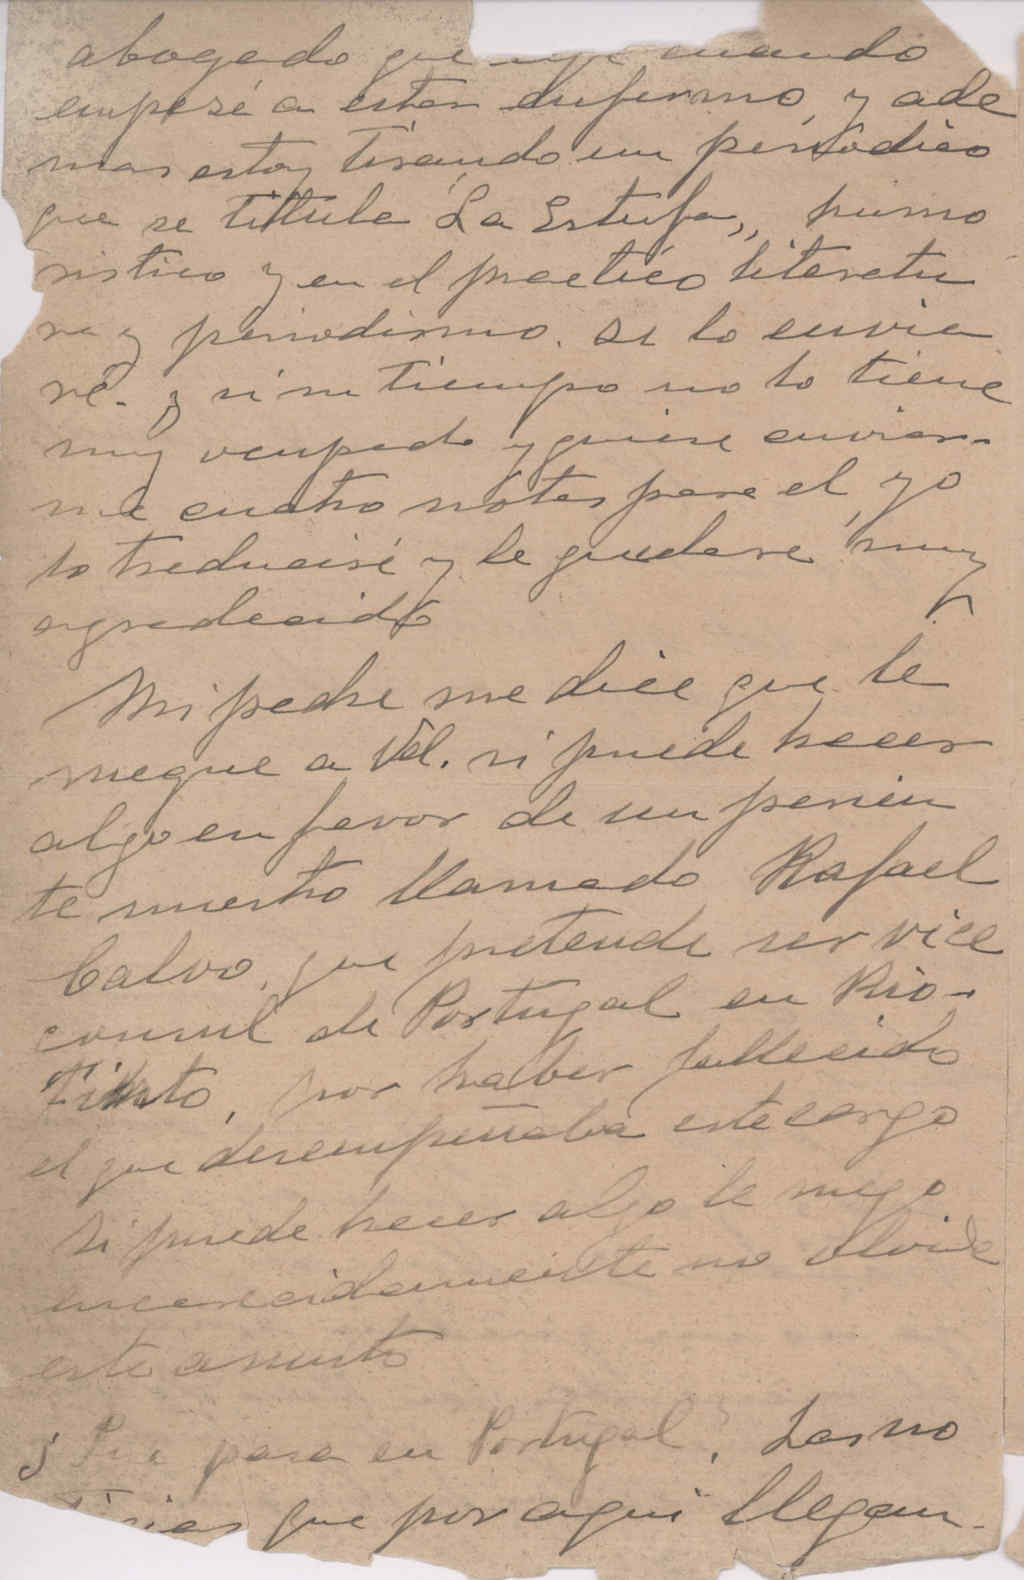 abogado que dejé cuando
empesé a estar enfermo, y ade
mas estoy tirando un periódico
que se titula "La Estufa,, humo
ristico y en el practico literatu
ra y periodismo. se lo envia
ré. y si su tiempo no lo tiene
muy ocupado y quiere enviar-
me cuatro notas para el, yo
lo traduciré y le quedare muy
agradecido
Mi padre me dice que le
ruegue a Vd. si puede hacer
algo en favor de un parien
te nuestro llamado Rafael
Calvo, que pretende ser vice
consul de Portugal en Rio-
Tinto, por haber fallecido
el que desempeñaba este cargo
Si puede hacer algo le ruego
encarecidamente no olvide
este asunto
¿Que pasa en Portugal? Las no
ticias que por aqui llegan-